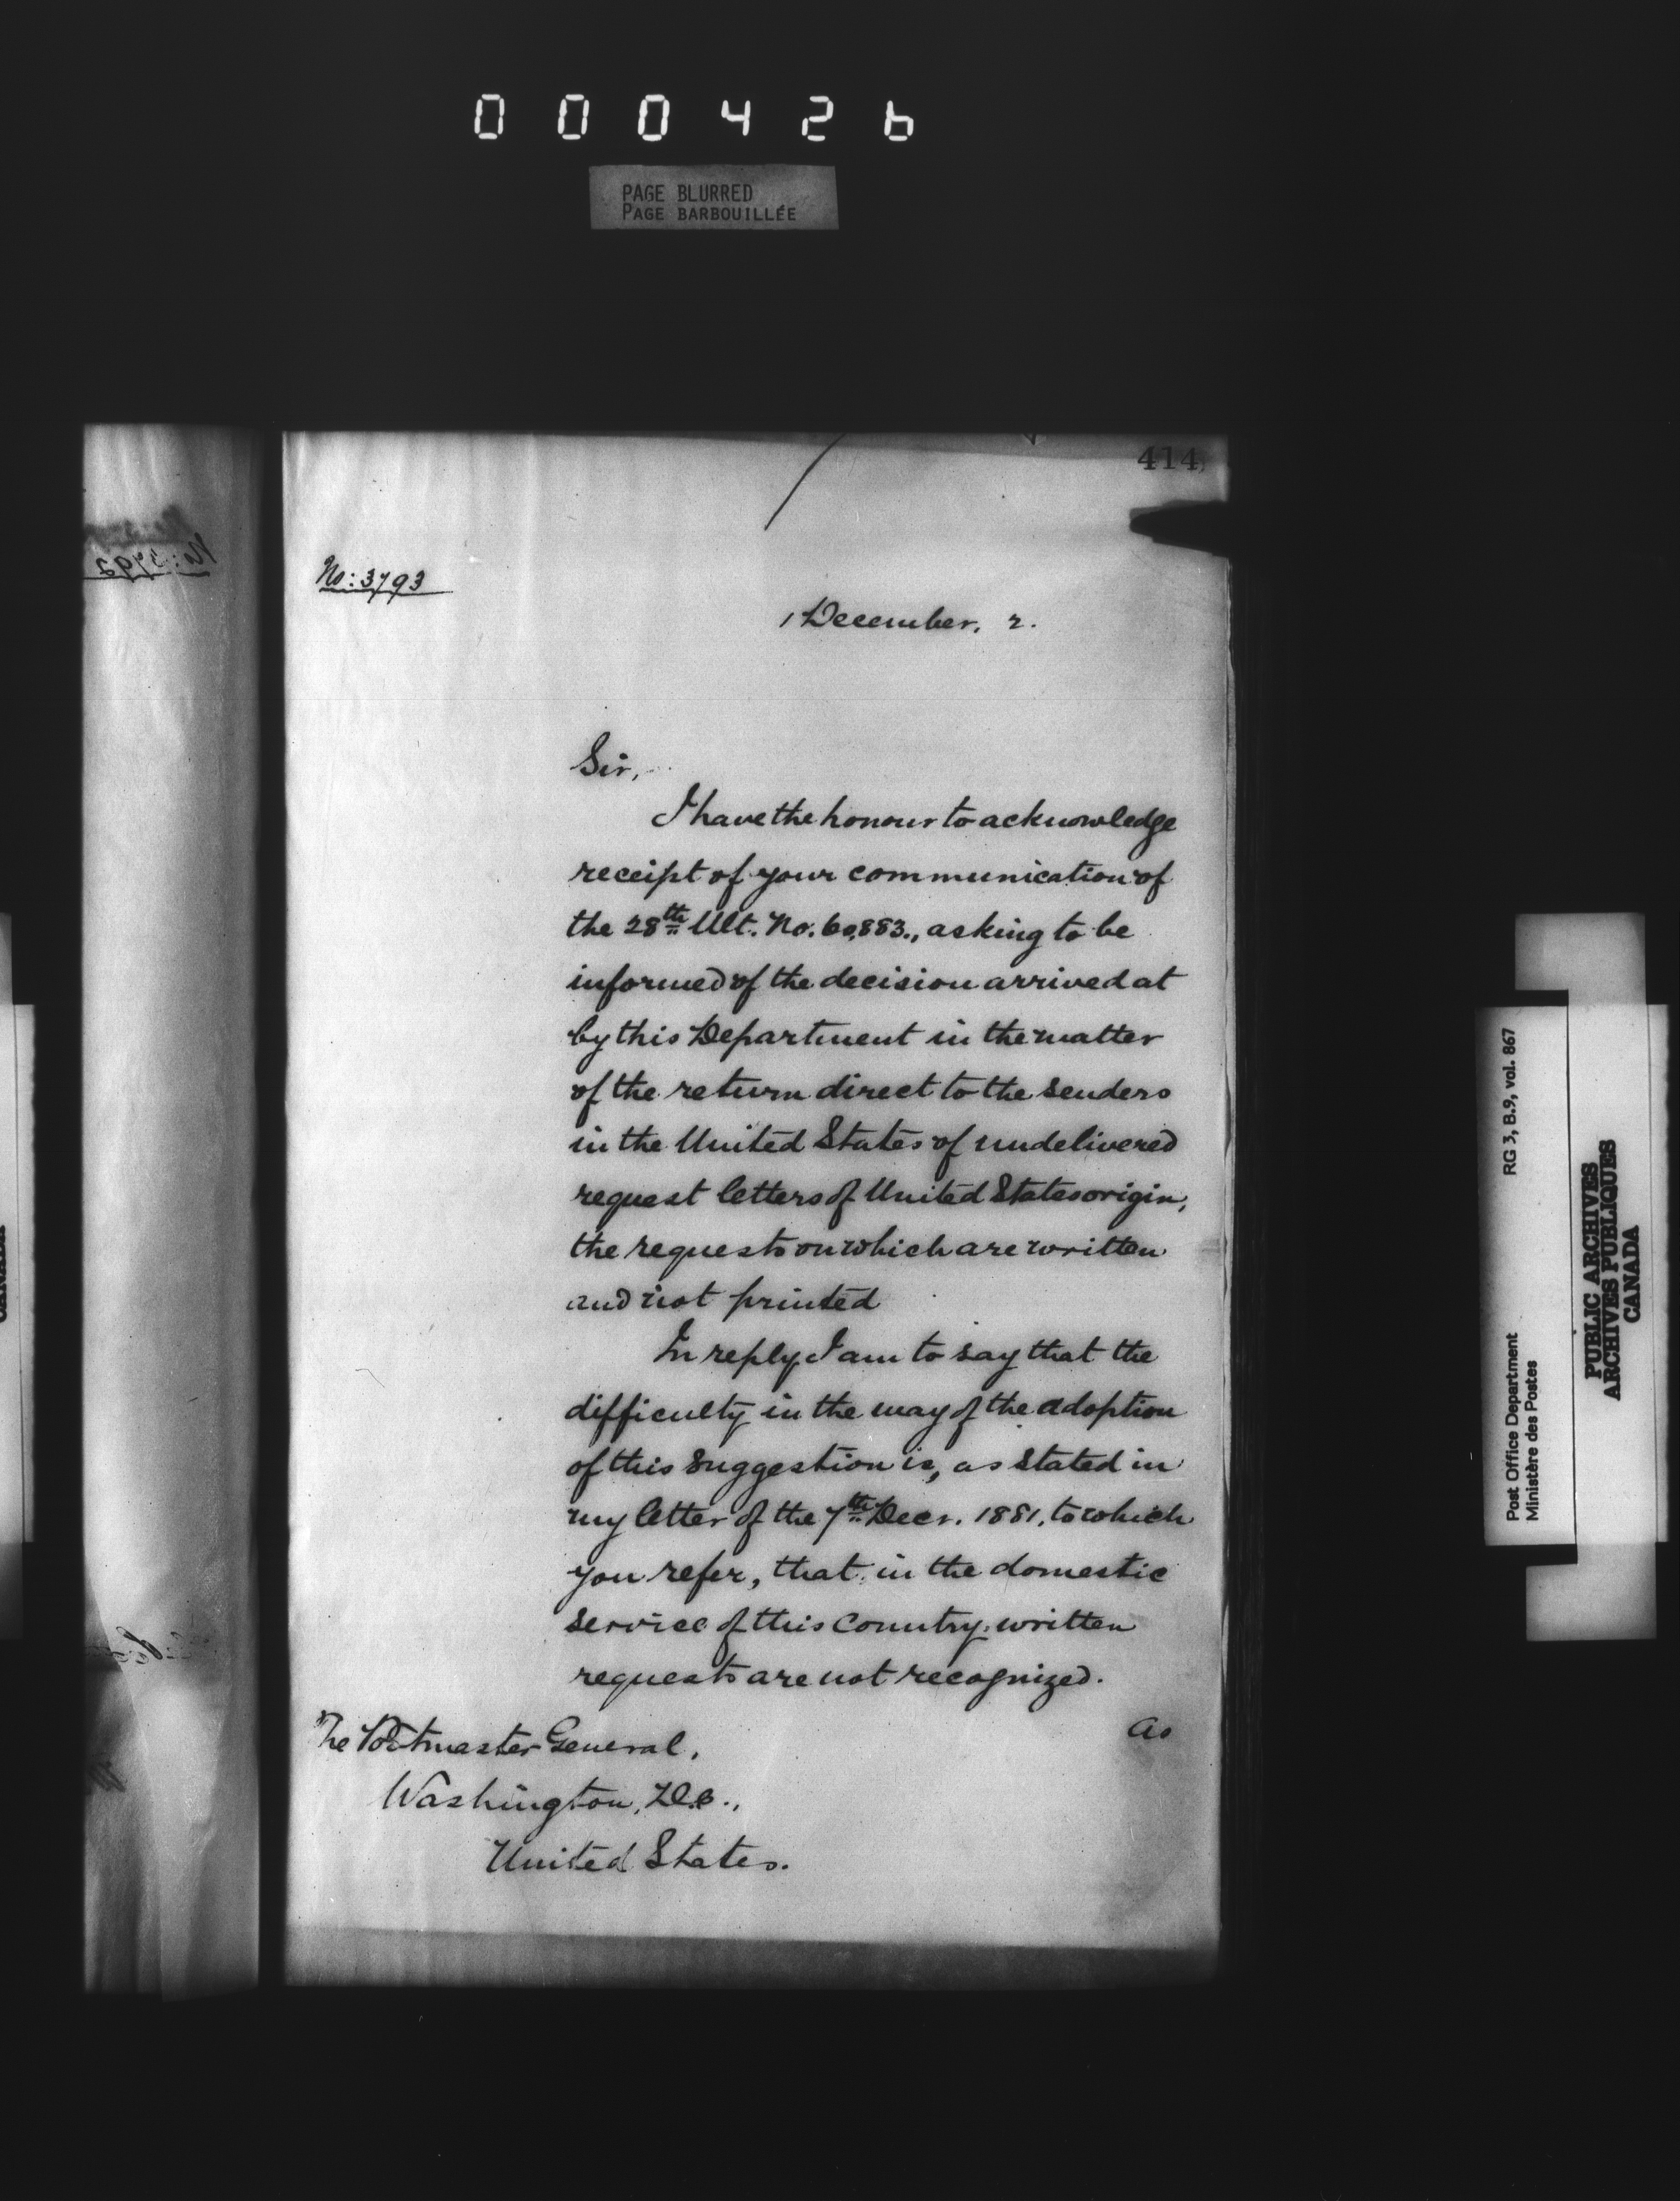 000426
PAGE BLURRED
PAGE BARBOUILLÉE
414
No: 3792
No: 3793
1 December, 2.
Sir,
I have the honour to acknowledge
receipt of your communication of
the 28th Ult. No. 60,883., asking to be
informed of the decision arrived at
by this Department in the matter
of the return direct to the senders
in the United States of undelivered
request letters of United States origin,
the requests on which are written
and not printed
In reply I am to say that the
difficulty in the way of the adoption
of this suggestion is, as stated in
my letter of the 7th Decr. 1881, to which
you refer, that in the domestic
service of this Country, written
requests are not recognized.
As
The Postmaster General,
Washington, D.C.,
United States.
Post Office Department RG 3, B.9, vol. 867
Ministère des Postes
PUBLIC ARCHIVES
ARCHIVES PUBLIQUES
CANADA
CANADA